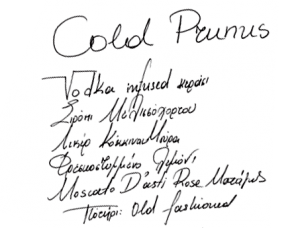 Cold Prunus
Vodka infused κεράσι
Σιρόπι Μελισσόχορτου
Λικέρ Κόκκινα Μούρα
Φρεσκοστυμμένο Λεμόνι
Moscato D'asti Rose
Ποτήρι: Old fashioned